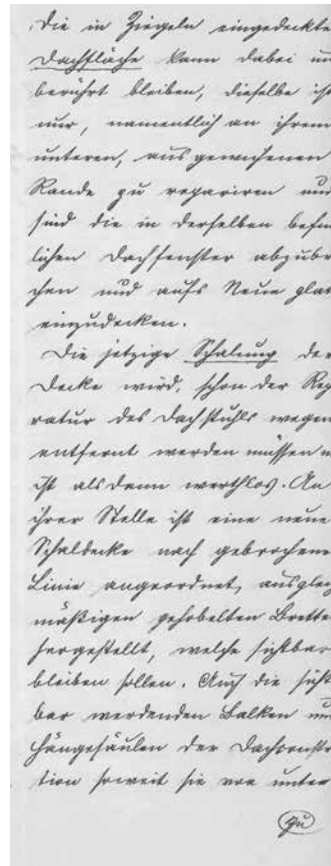 Die in Ziegeln eingedeckte
Dachfläche kann dabei un
berührt bleiben, dieselbe ist
nur, namentlich an ihrem
unteren, ausgewichenen
Rande zu repariren und
sind die in derselben befin
lichen Dachfenster abzubre
chen und aufs Neue glat
einzudecken.
Die jetzige Schalung der
Decke wird, schon der Rep
ratur des Dachstuhls wegen
entfernt werden müssen u
ist alsdann werthlos. An
ihrer Stelle ist eine neue
Schaldecke nach gebrochene
Linie angeordnet, aus gleich
mäßigen gehobelten Brettern
hergestellt, welche sichtbar
bleiben sollen. Auch die sicht
bar werdenden Balken un
Hängesäulen der Dachconstr
tion soweit sie von unten
zu